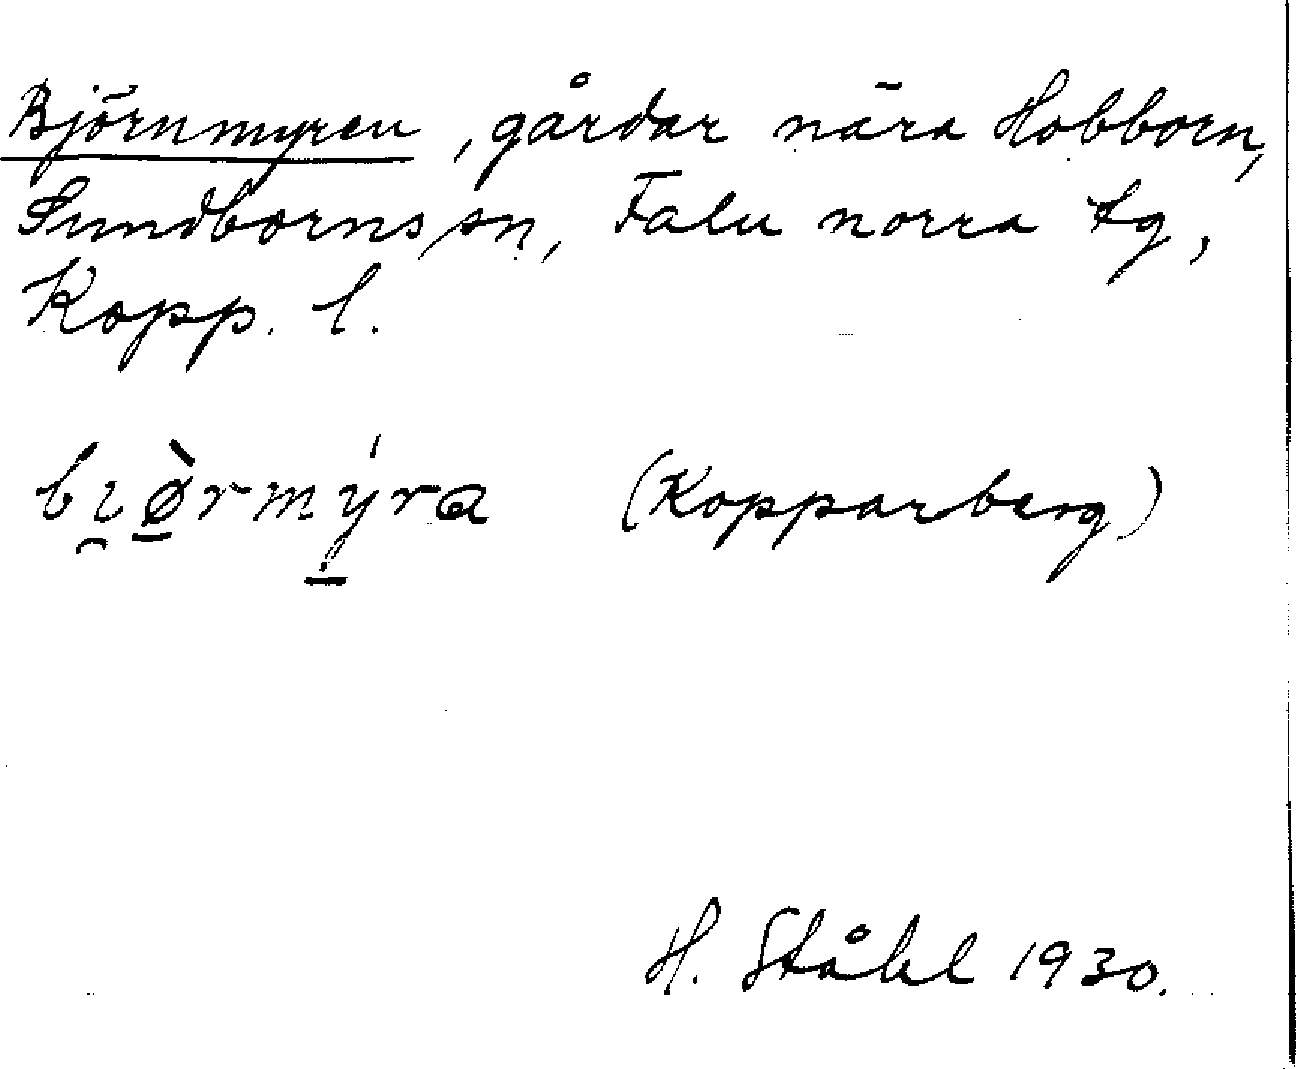 Björnmyren, gårdar nära Hobborn,
Sundborns sn, Falu norra tg,
Kopp. l.
bı̯ø̠̀rmý̠ra (Kopparberg)
H. Ståhl 1930.